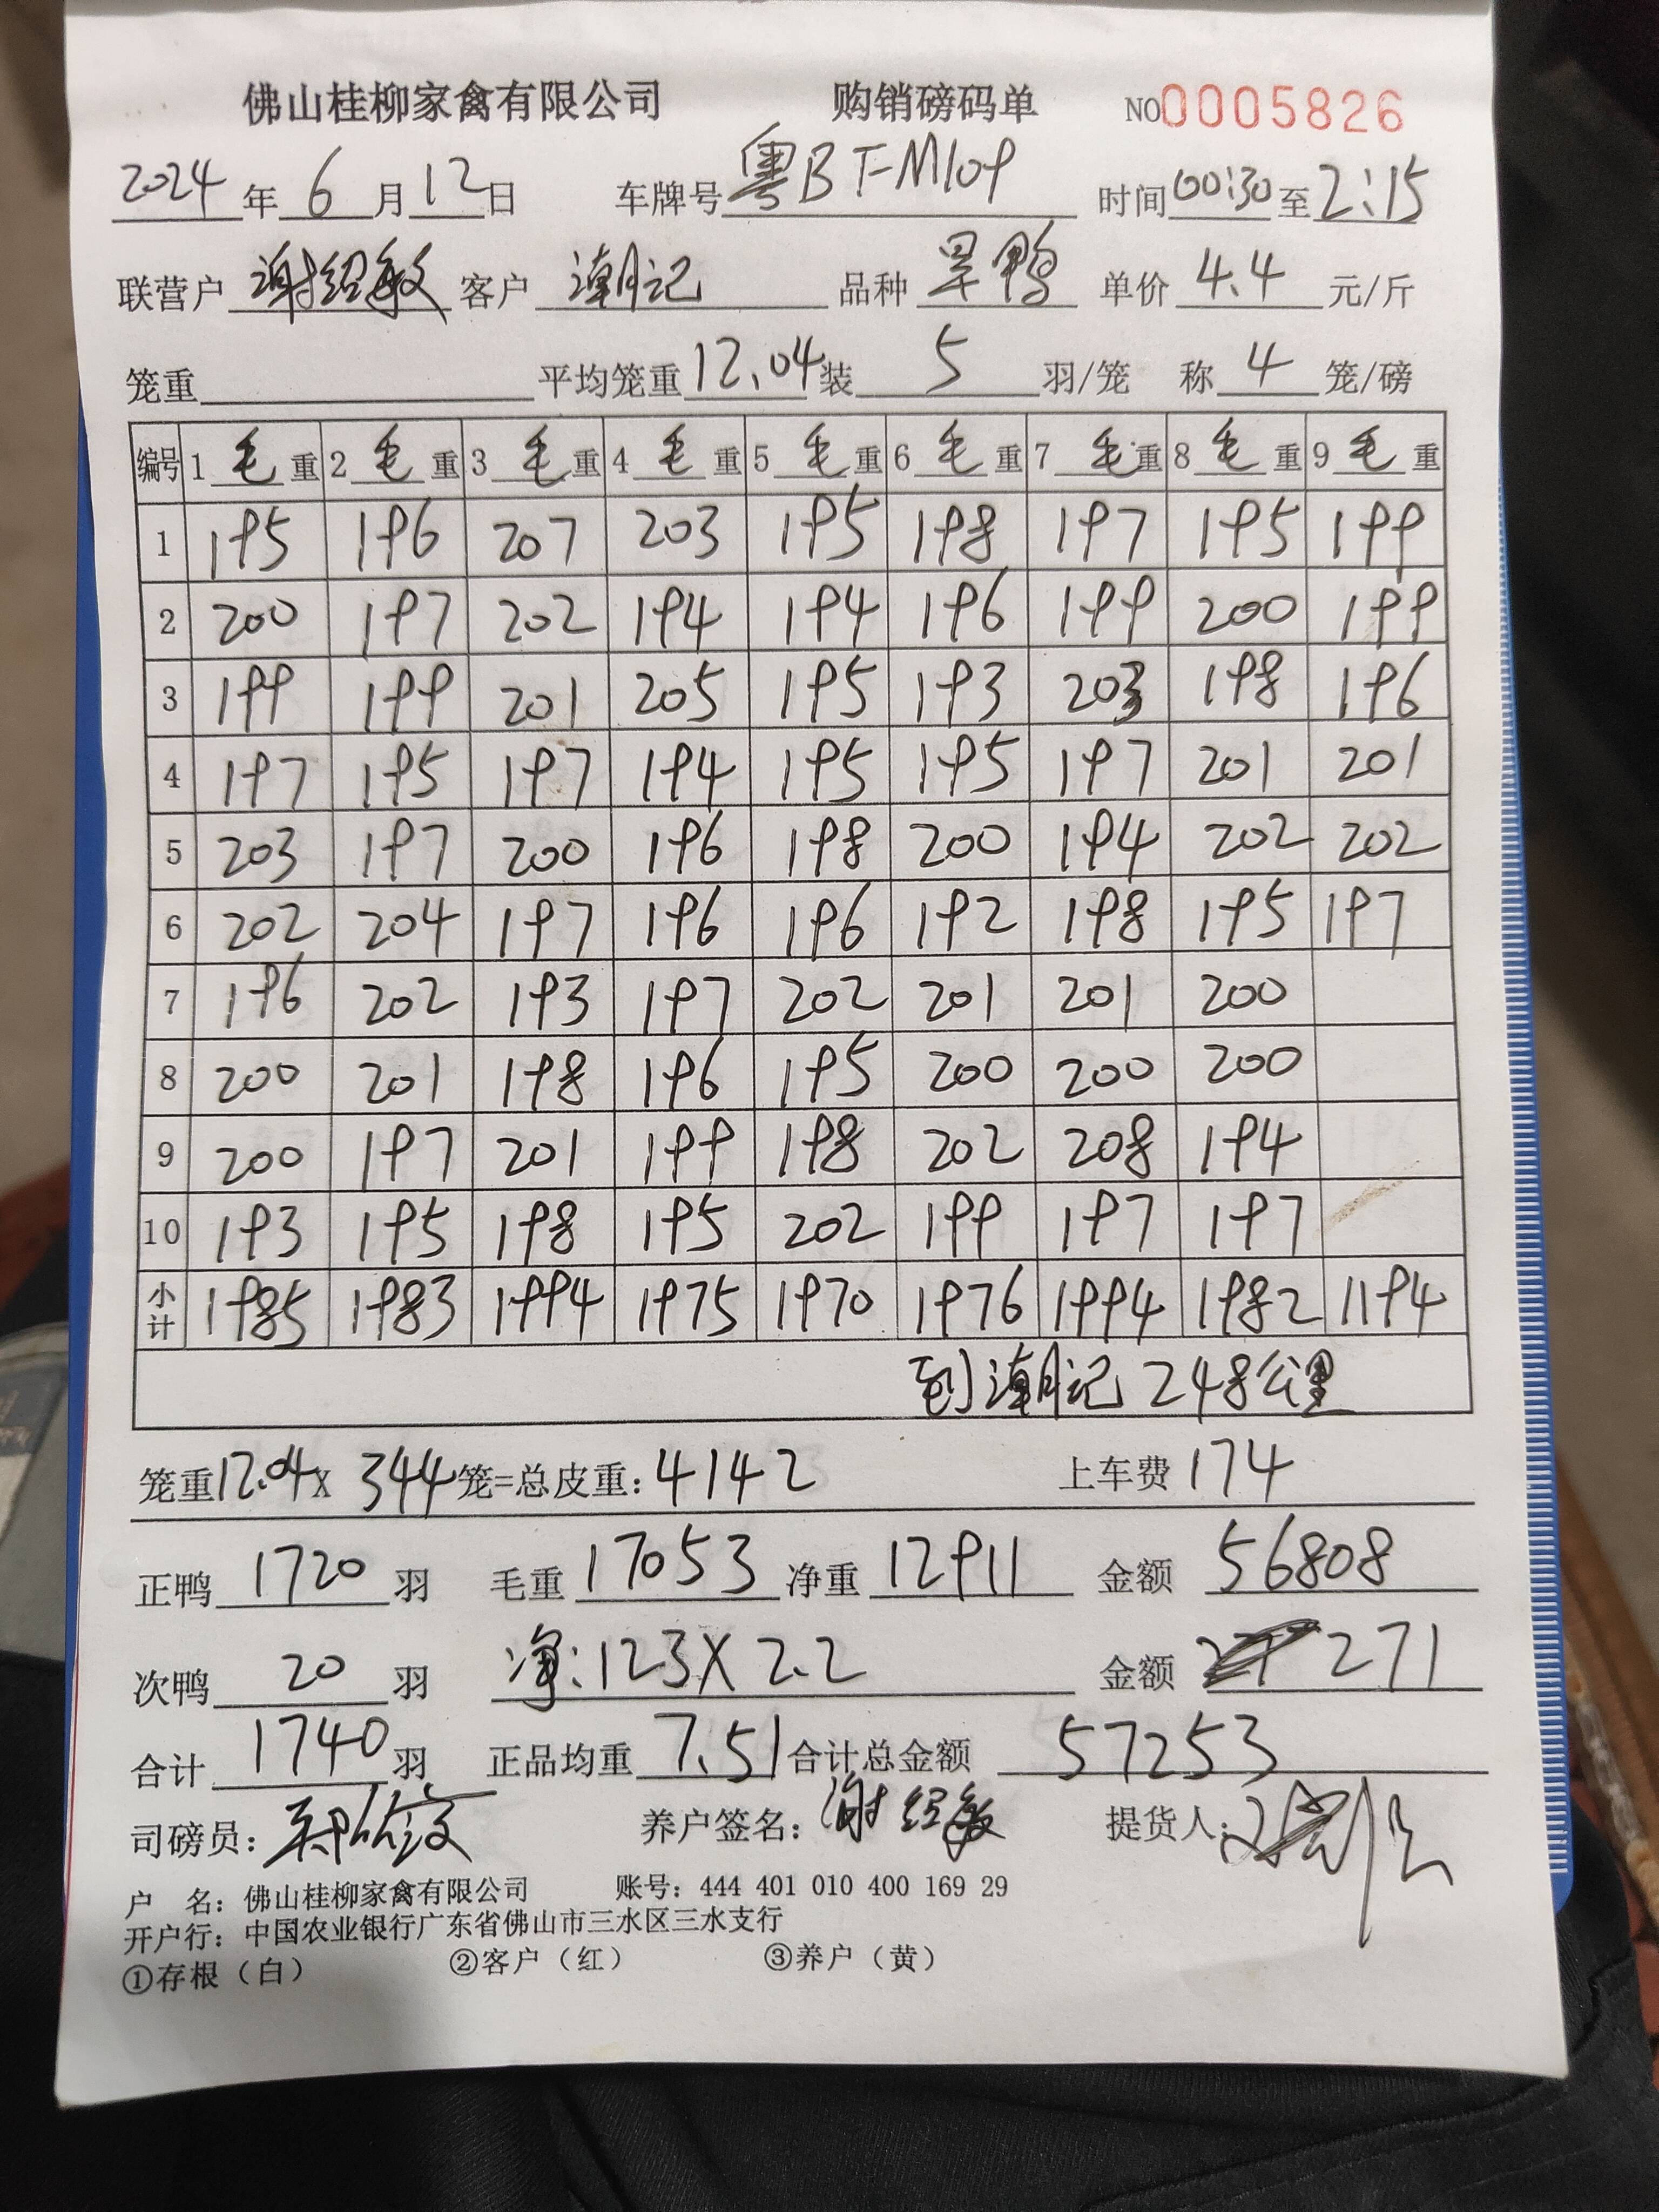 佛山桂柳家禽有限公司 购销磅码单 NO0005826
2024年6月12日 车牌号粤BF-M109 时间00:30至2:15
联营户谢绍敏 客户潮记 品种旱鸭 单价4.4元/斤
笼重 平均笼重12.04装5羽/笼 称4笼/磅
编号 1毛重 2毛重 3毛重 4毛重 5毛重 6毛重 7毛重 8毛重 9毛重
1 195 196 207 203 195 198 197 195 199
2 200 197 202 194 194 196 199 200 199
3 199 199 201 205 195 193 203 198 196
4 197 195 197 194 195 195 197 201 201
5 203 197 200 196 198 200 194 202 202
6 202 204 197 196 196 192 198 195 197
7 196 202 193 197 202 201 201 200
8 200 201 198 196 195 200 200 200
9 200 197 201 199 198 202 208 194
10 193 195 198 195 202 199 197 197
小计 1985 1983 1994 1975 1970 1976 1994 1982 1194
到潮记248公里
笼重12.04X 344笼=总皮重:4142 上车费174
正鸭1720羽 毛重17053 净重12911 金额56808
次鸭20羽 净:123X2.2 金额 271
合计1740羽 正品均重7.51 合计总金额57253
司磅员: 养户签名:谢绍敏 提货人:
户 名:佛山桂柳家禽有限公司 账号:444 401 010 400 169 29
开户行:中国农业银行广东省佛山市三水区三水支行
①存根(白) ②客户(红) ③养户(黄)